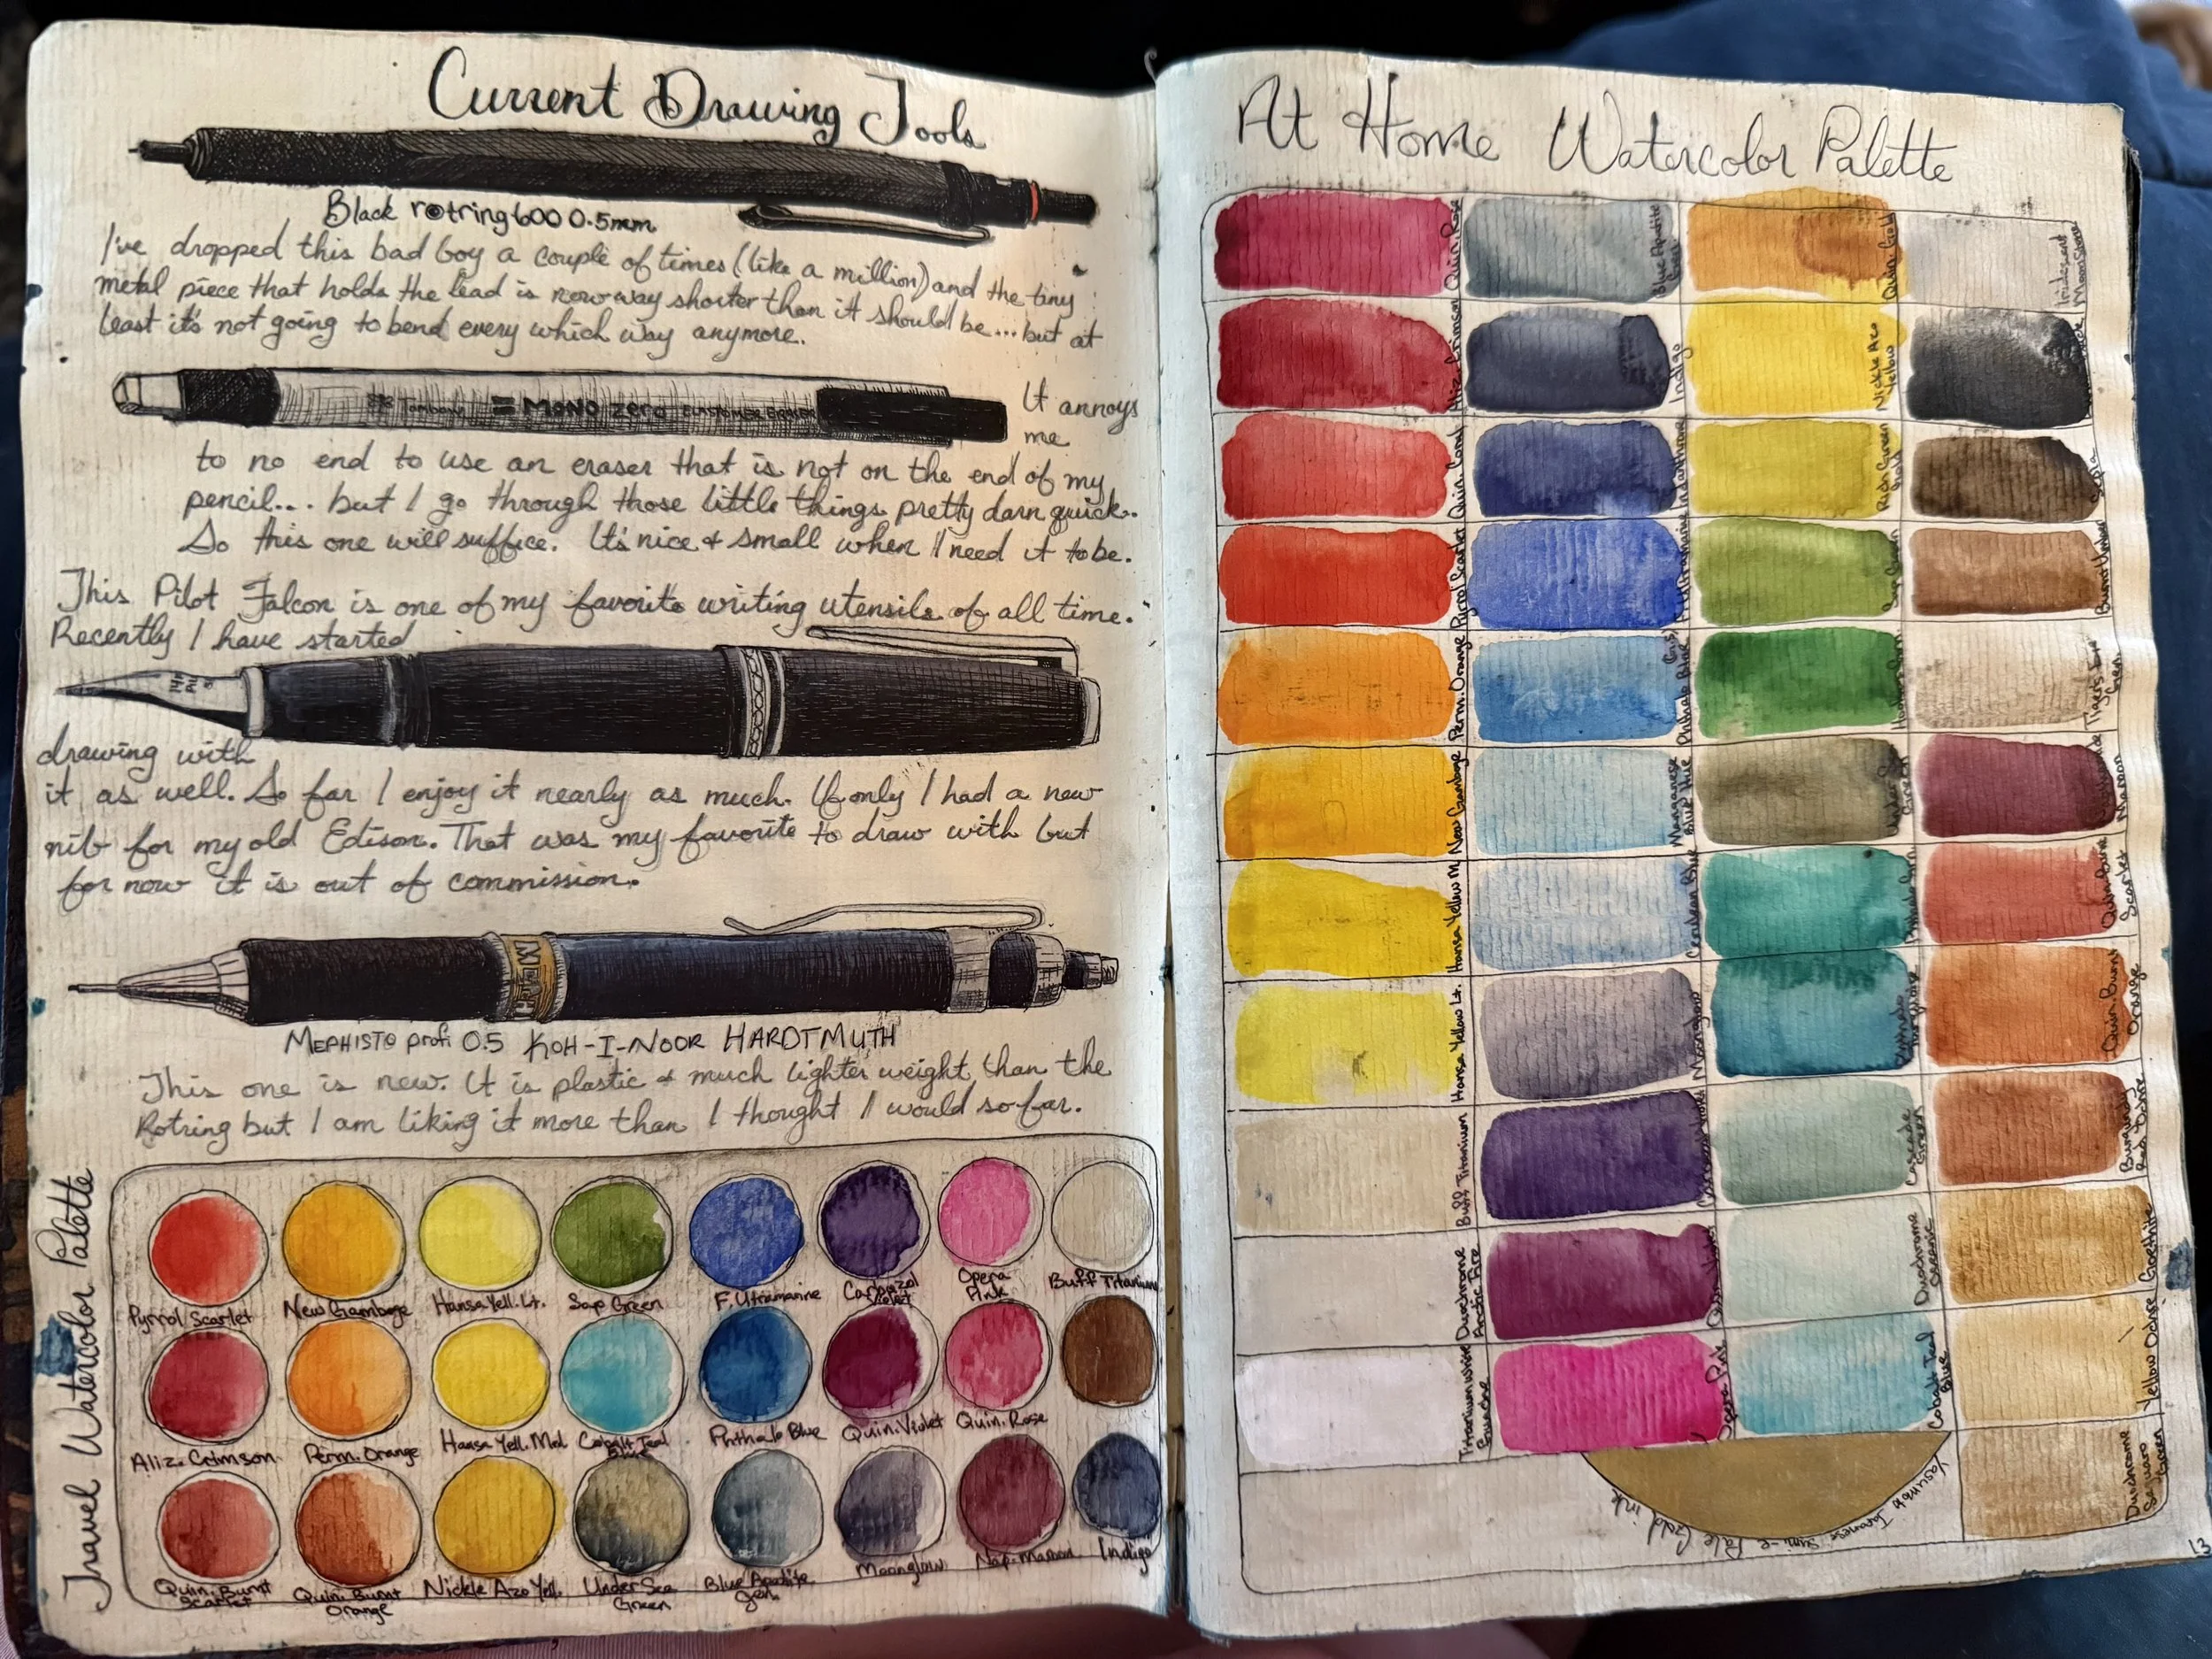 Current Drawing Tools
Black rotring 600 0.5mm
I've dropped this bad boy a couple of times (like a million) and the tiny
metal piece that holds the lead is now way shorter than it should be... but at
least it's not going to bend every which way anymore.
Tombow MONO zero ELASTOMER ERASER
It annoys
me
to no end to use an eraser that is not on the end of my
pencil... but I go through those little things pretty darn quick.
So this one will suffice. It's nice & small when I need it to be.
This Pilot Falcon is one of my favorite writing utensils of all time.
Recently I have started
drawing with
it as well. So far I enjoy it nearly as much. If only I had a new
nib for my old Edison. That was my favorite to draw with but
for now it is out of commission.
MEPHISTO profi 0.5 KOH-I-NOOR HARDTMUTH
This one is new. It is plastic & much lighter weight than the
Rotring but I am liking it more than I thought I would so far.
Travel Watercolor Palette
Pyrrol Scarlet
New Gamboge
Hansa Yell. Lt.
Sap Green
F. Utramarine
Carbazol
Violet
Opera
Pink
Buff Titanium
Aliz. Crimson
Perm. Orange
Hansa Yell. Med.
Cobalt Teal
Blue
Phthalo Blue
Quin. Violet
Quin. Rose
Quin. Burnt
Scarlet
Quin. Burnt
Orange
Nickle Azo Yell.
UnderSea
Green
Blue Apatite
Gen.
Moonglow
Nap. Maroon
Indigo
At Home Watercolor Palette
Quin. Rose
Blue Apatite
Gen.
Quin. Gold
Iridescent
Moonstone
Aliz. Crimson
Indigo
Nickle Azo
Yellow
Quin. Coral
Indanthrone
Rich Green
Gold
Sepia
Pyrrol Scarlet
Ultramarine
Sap Green
Burnt Umber
Perm. Orange
Phthalo Blue
Tiger's Eye
Gen.
New Gamboge
Manganese
Blue Hue
Green
Maroon
Hansa Yellow M.
Cerulean Blue
Quin. Burnt
Scarlet
Hansa Yellow Lt.
Moonglow
Quin. Burnt
Orange
Buff Titanium
Cascade
Green
Burgundy
Red Ochre
Duochrome
Arctic Fire
Duochrome
Oceanic
Goethite
Titanium White
Opera Pink
Cobalt Teal
Blue
Yellow Ochre
Yasutomo
Japanese Sumi-e Pale Gold ink
Duochrome
Saguaro
Green
13